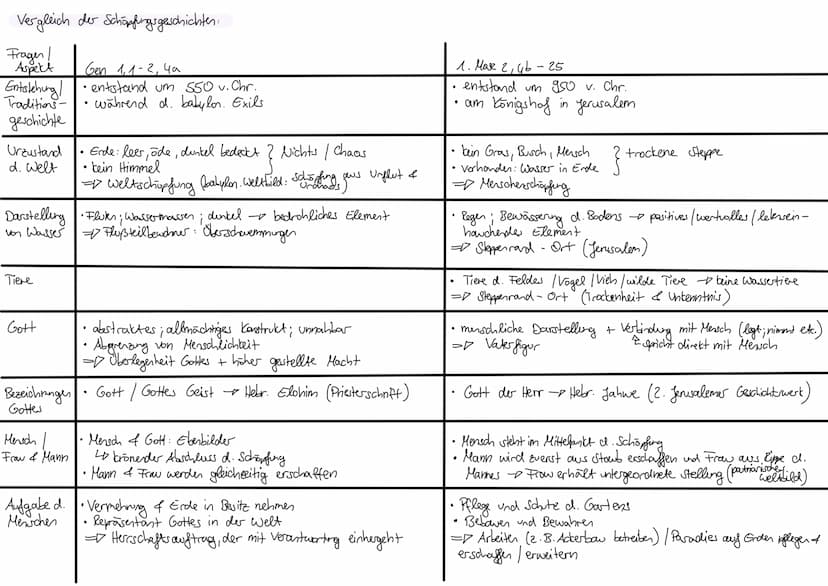 Vergleich der Schöpfungsgeschichten:
Fragen /
Aspekt
Gen 1,1-2,4a
1. Mose 2,4b - 25
Entstehung/
Traditions-
geschichte
• entstand um 550 v. Chr.
• während d. babylon. Exils
• entstand um 950 v. Chr.
• am Königshof in Jerusalem
Urzustand
d. Welt
• Erde: leer, öde, dunkel bedeckt } Nichts / Chaos
• kein Himmel
=> Weltschöpfung (babylon. Weltbild: Schöpfung aus Urflut &
Urchaos)
• kein Gras, Busch, Mensch } trockene Steppe
• vorhanden: Wasser in Erde
=> Menschenschöpfung
Darstellung
von Wasser
• Fluten; Wassermassen; dunkel → bedrohliches Element
=> Flußteilbewohner: Überschwemmungen
• Regen; Bewässerung d. Bodens → positives/wertvolles/lebensein-
hauchendes Element
=> Steppenrand-Ort (Jerusalem)
Tiere
• Tiere d. Feldes / Vögel / Vieh / wilde Tiere → keine Wassertiere
=> Steppenrand-Ort (Trockenheit & Unkenntnis)
Gott
• abstraktes; allmächtiges Konstrukt; unnahbar
• Abgrenzung von Menschlichkeit
=> Überlegenheit Gottes + höher gestellte Macht
• menschliche Darstellung + Verbindung mit Mensch (legt; nimmt etc.)
=> Vaterfigur
spricht direkt mit Mensch
Bezeichnungen
Gottes
• Gott / Gottes Geist → Hebr. Elohim (Priesterschrift)
• Gott der Herr → Hebr. Jahwe (2. Jerusalemer Geschichtswerk)
Mensch /
Frau & Mann
• Mensch & Gott: Ebenbilder
↳ krönender Abschluss d. Schöpfung
• Mann & Frau werden gleichzeitig erschaffen
• Mensch steht im Mittelpunkt d. Schöpfung
• Mann wird zuerst aus Staub erschaffen und Frau aus Rippe d.
Mannes → Frau erhält untergeordnete Stellung (patriarchisches
Weltbild)
Aufgabe d.
Menschen
• Vermehrung & Erde in Besitz nehmen
• Repräsentant Gottes in der Welt
=> Herrschaftsauftrag, der mit Verantwortung einhergeht
• Pflege und Schutz d. Gartens
• Bebauen und Bewahren
=> Arbeiten (z.B. Ackerbau betreiben) / Paradies auf Erden pflegen &
erschaffen / erweitern